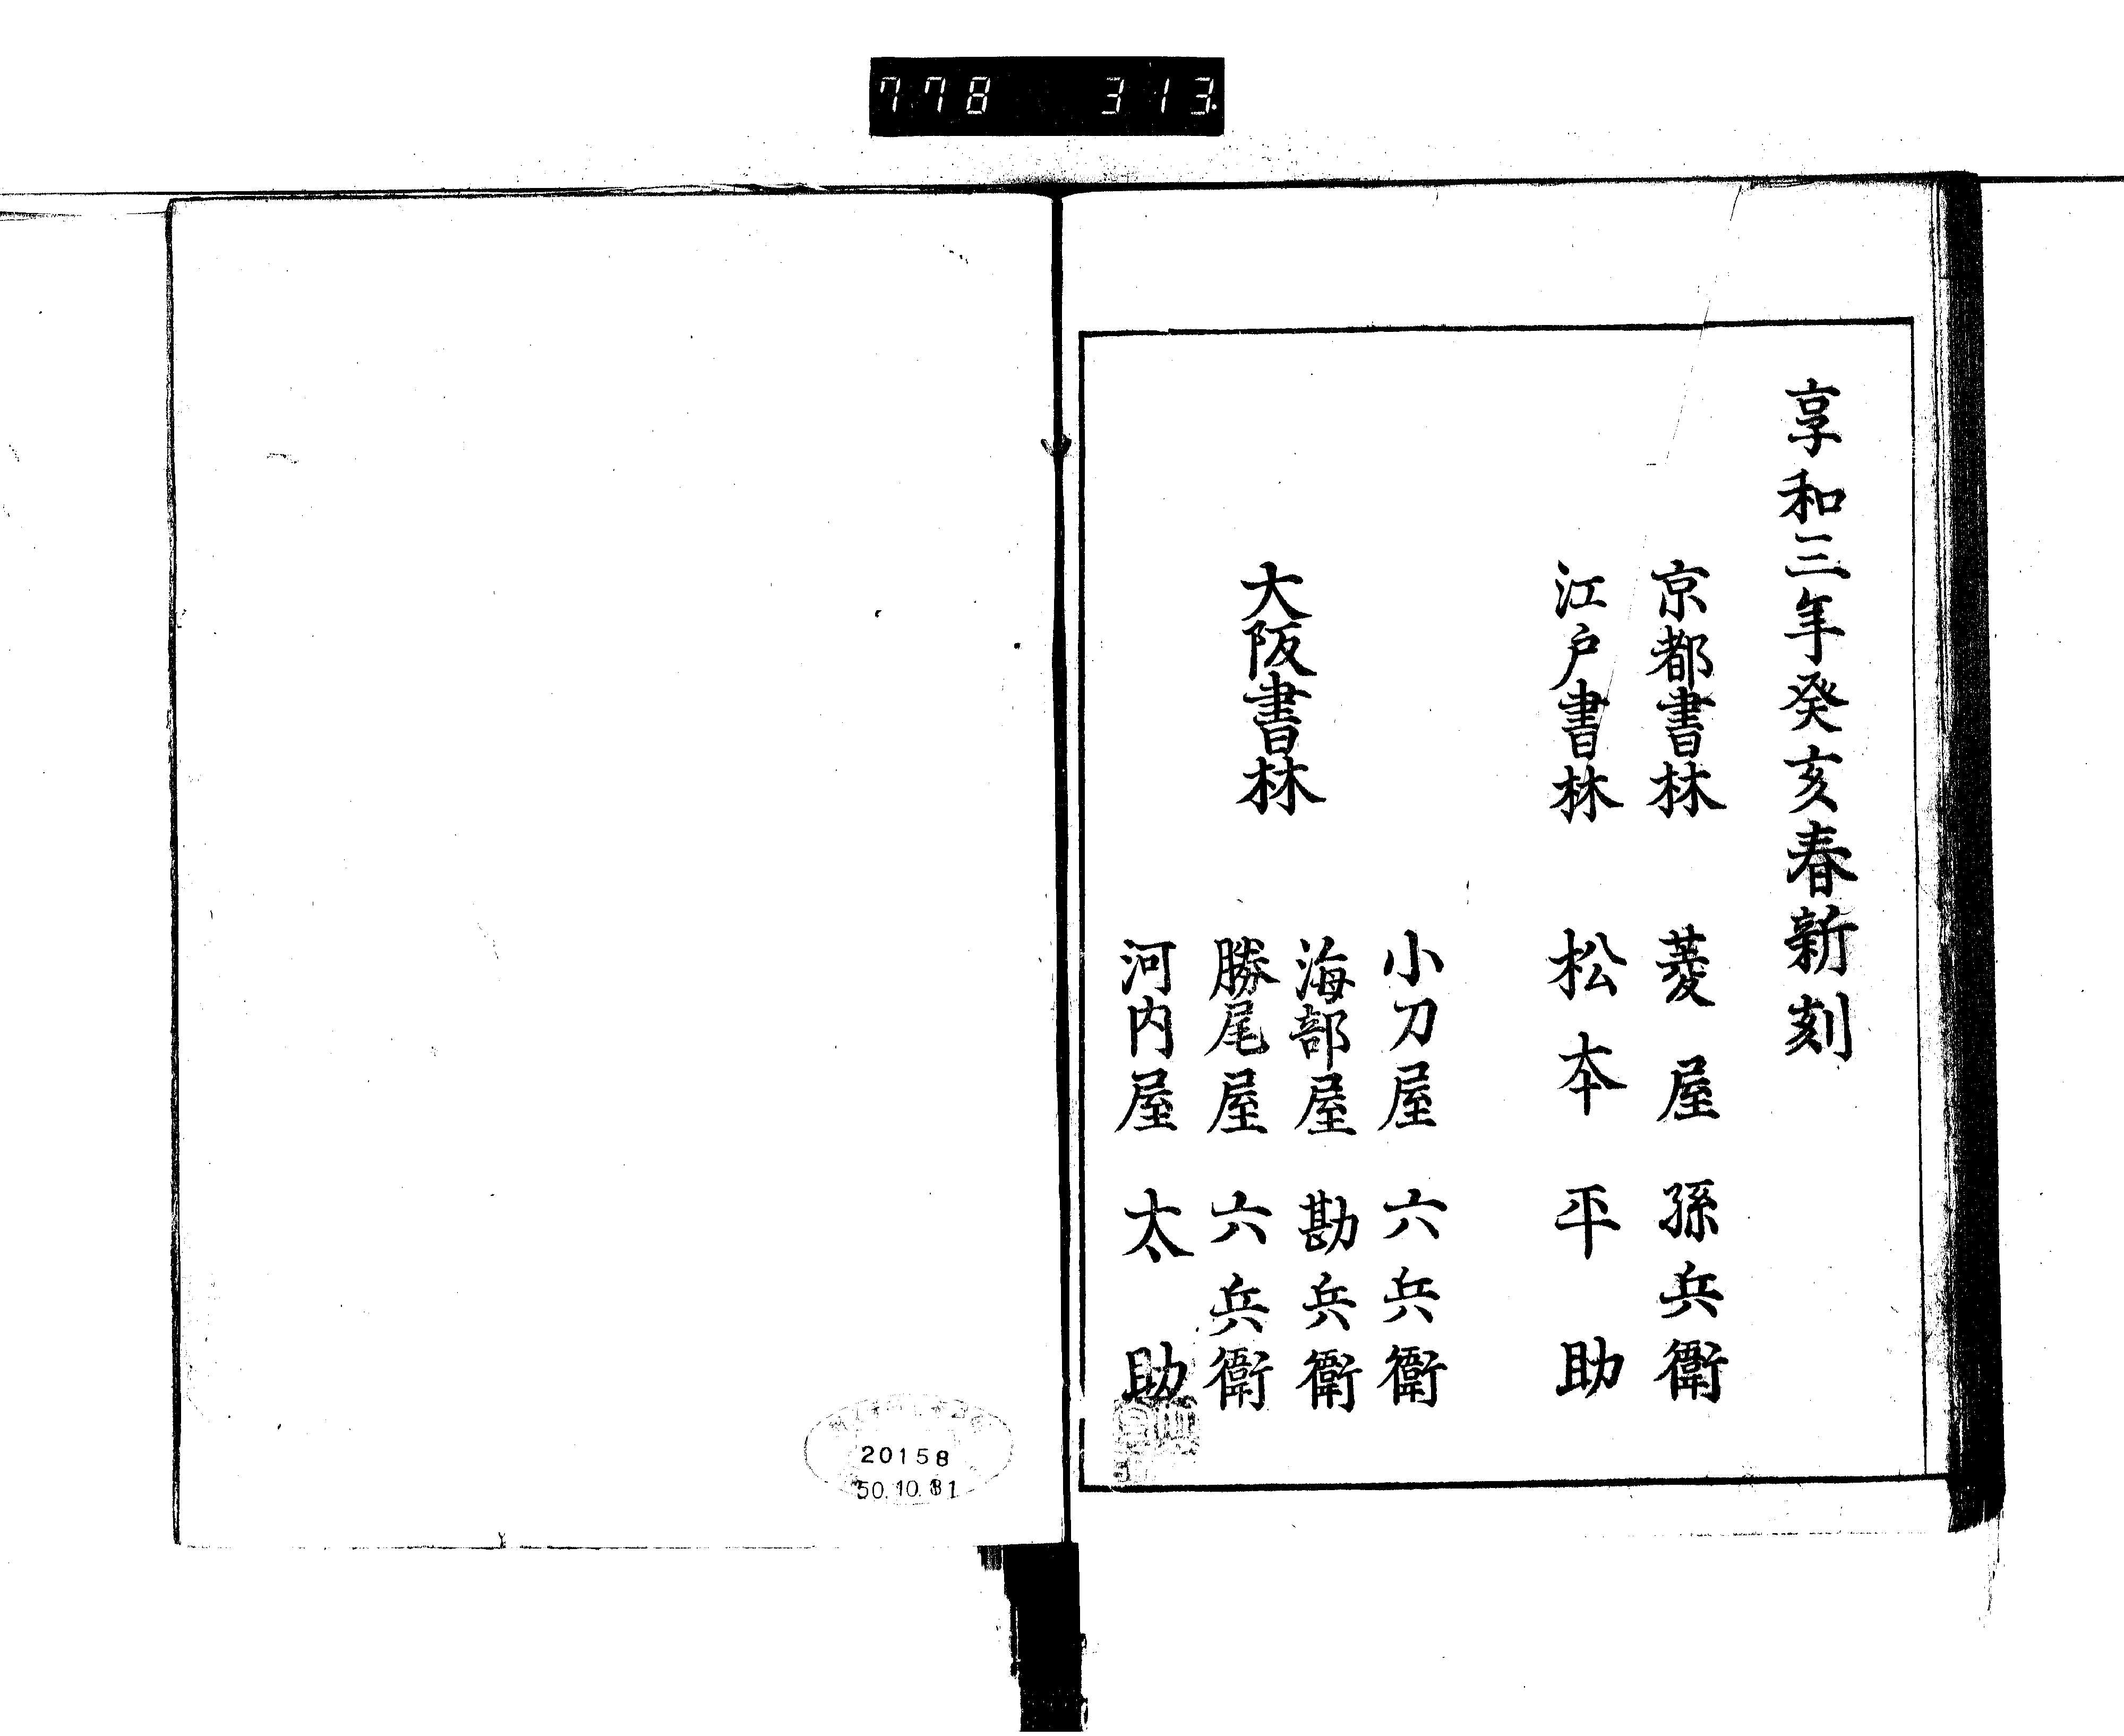 778 313
享和三年癸亥春新刻
京都書林 菱屋孫兵衛
江戸書林 松本平助
大阪書林
小刀屋六兵衛
海部屋勘兵衛
勝尾屋六兵衛
河内屋太助
20158